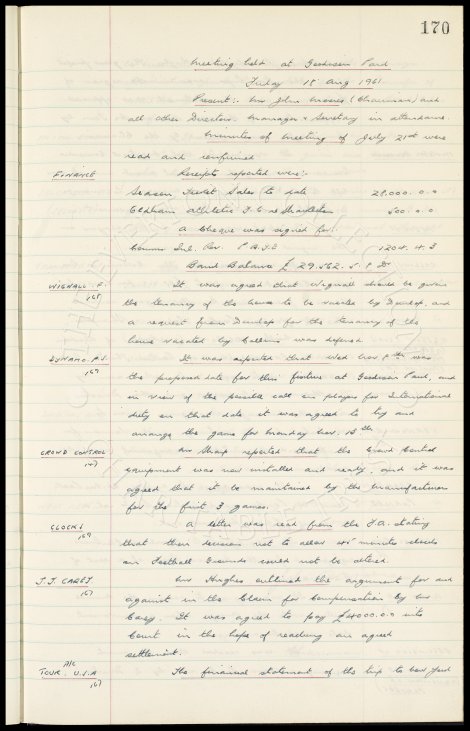 170
Meeting held at Goodison Park
Friday 18 Aug 1961
Present:- Mr John Moores (Chairman) and
all other Directors. Manager & Secretary in attendance.
Minutes of Meeting of July 21st were
read and confirmed
FINANCE Receipts reported were:-
Season Ticket Sales to date 28,000. 0. 0
Oldham Athletic F.C. re Shackleton 500. 0. 0
A cheque was signed for:-
Comms Inl. Rev. P.A.Y.E 1204. 4. 3
Bank Balance £ 29,562. 5. 8 Dr
WIGNALL F. It was agreed that Wignall should be given
168 the tenancy of the house to be vacated by Dunlop, and
a request from Dunlop for the tenancy of the
house vacated by Collins was deferred.
DYNAMO It was reported that Wed Nov 8th was
169 the proposed date for this fixture at Goodison Park, and
in view of the possible call on players for International
duty on that date it was agreed to try and
arrange the game for Monday Nov. 13th.
CROWD CONTROL Mr Sharp reported that the Crowd Control
equipment was now installed and ready, and it was
agreed that it be maintained by the manufacturers
for the first 3 games.
CLOCKS A letter was read from the F.A. stating
169 that their decision not to allow 45 minutes clocks
on Football Grounds could not be altered.
J.J. CAREY Mr Hughes outlined the argument for and
167 against in the Claim for Compensation by Mr
Carey. It was agreed to pay £4000.0.0 into
Court in the hope of reaching an agreed
settlement.
A/C
TOUR U.S.A The financial statement of the trip to New York
167